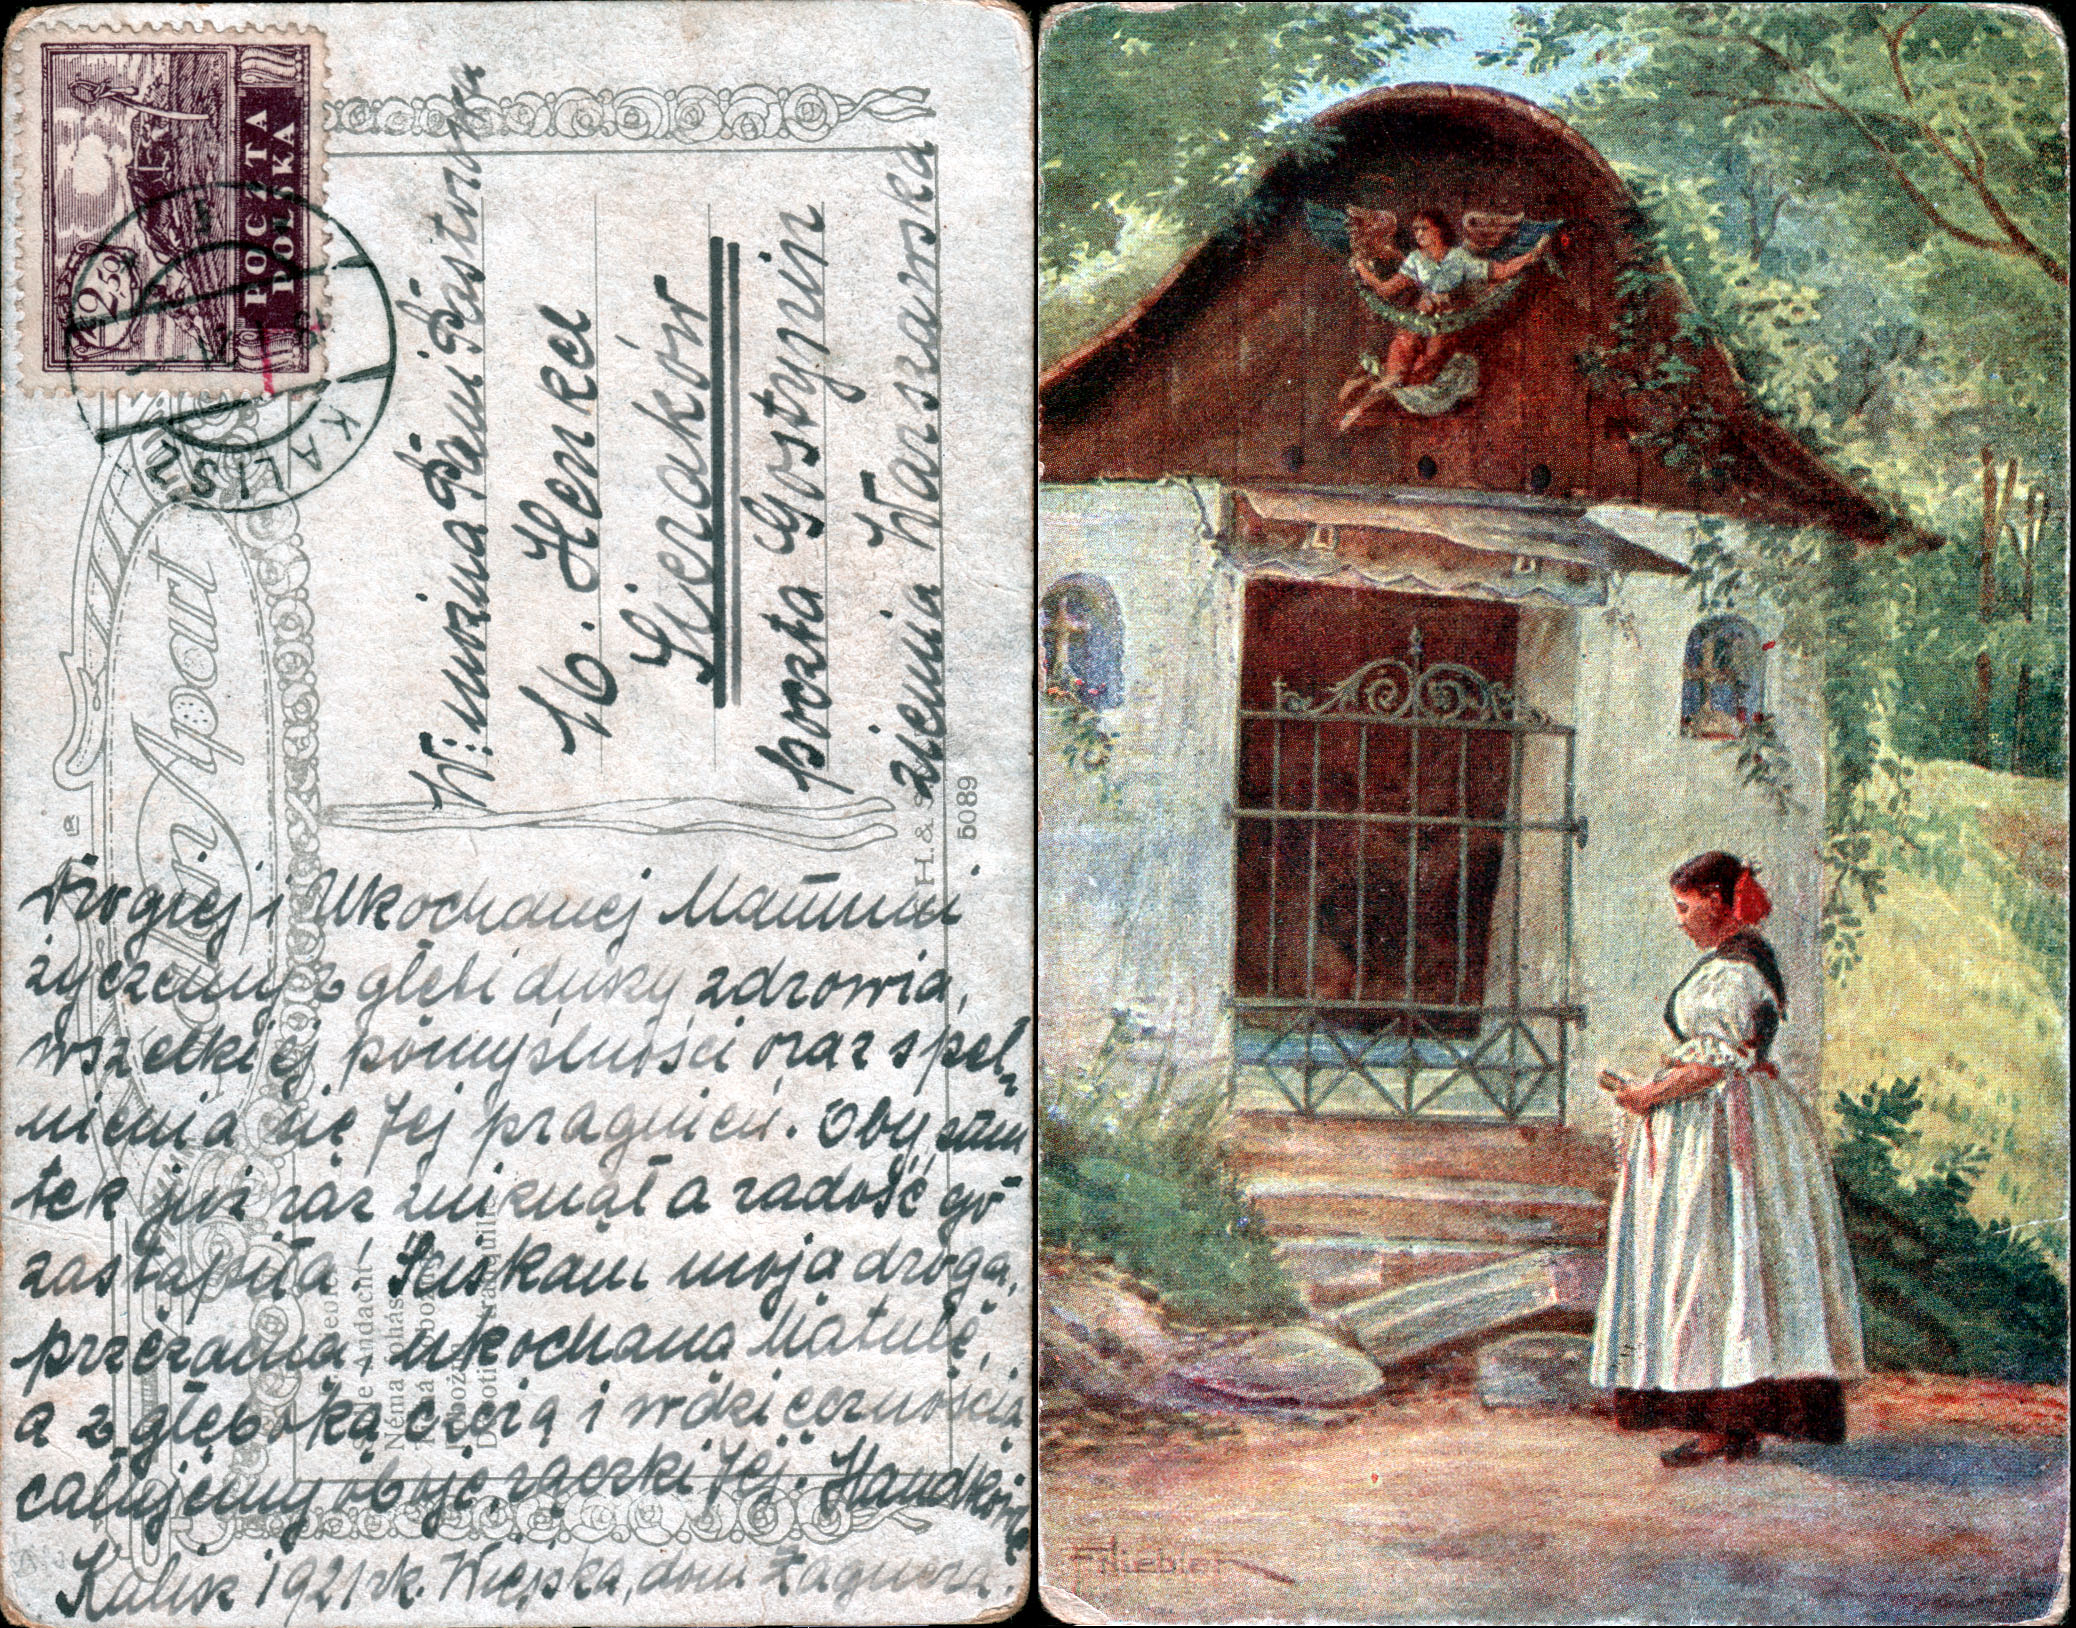 POCZTA
POLSKA
2.50
KALISZ
von Apart
W: Imożna Pani Pastorowa
16. Henkel
Sieraków
poczta Gostynin
ziemia Warszawska
H. & S.
5089
Drogiej i Ukochanej Mamuni
życzemy z głębi duszy zdrowia,
wszelkiej pomyślności oraz speł„
nienia się Jej pragnień. Oby smu
tek już raz zniknął a radość go
zastąpiła! Ściskam moją drogą,
przezacną, ukochaną Matulę,
a z głęboką czcią i wdzięcznością
całujemy oboje rączki Jej.
Kalisz 1921 rk. Wiejska, dom Zagnera.
Stille Andacht
Němá
Dévotion tranquille